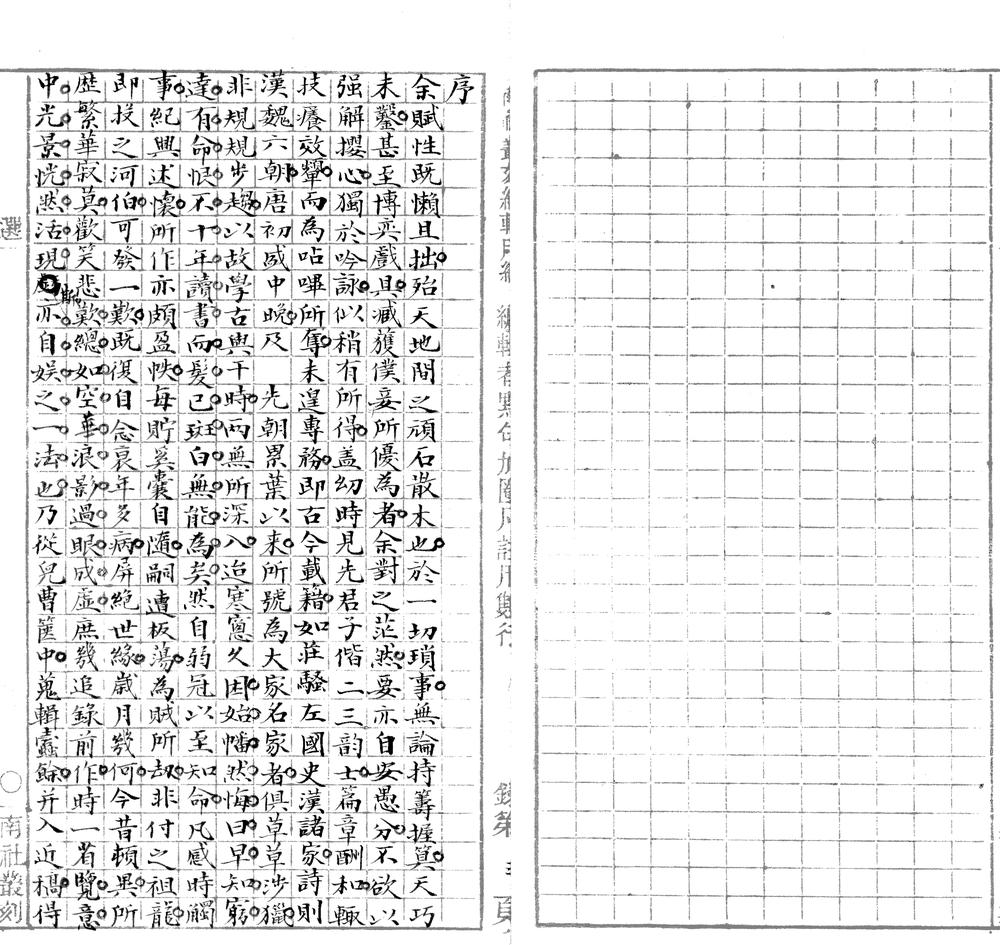 序
余賦性既懶且拙。殆天地間之頑石散木也。於一切瑣事。無論持籌握算。天巧
未鑿。甚至博奕戲具。臧獲僕妾所優為者。余對之茫然。要亦自安愚分。不欲以
强解攖心。獨於吟詠。似稍有所得。盖幼時見先君子偕二三韵士。篇章酬和。輒
技癢效顰。而為呫嗶所奪。未遑專務。即古今載籍。如莊騷左國史漢諸家。詩則
漢魏六朝。唐初盛中晚。及　先朝累葉以来。所號為大家名家者。俱草草涉獵。
非規規步趨。以故學古與干時。兩無所深入。迨寒窻久困。始幡然悔曰。早知窮
達有命。恨不十年讀書。而髮已斑白。無能為矣。然自弱冠以至知命。凡感時觸
事。紀興述懷。所作亦頗盈帙。每貯奚囊自隨。嗣遭板蕩。為賊所刼。非付之祖龍。
即投之河伯。可發一歎。既復自念衰年多病。屏絶世緣。歲月幾何。今昔頓異。所
歷繁華寂莫。歡笑悲歎。總如空華浪影。過眼成虛。庶幾追録前作。時一省覽。意
中光景。恍然活現。斯亦自娱之一法也。乃從兒曹篋中。蒐輯蠹餘。并入近稿。得
選
○南社叢刻